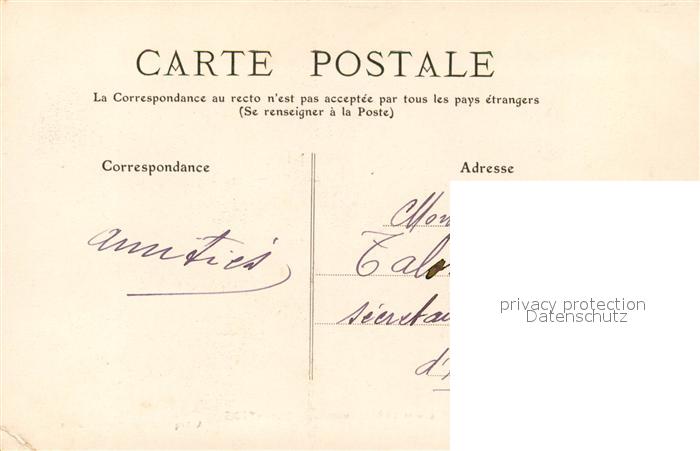 CARTE POSTALE
La Correspondance au recto n'est pas acceptée par tous les pays étrangers
(Se renseigner à la Poste)
Correspondance
Adresse
amitiés
privacy protection
Datenschutz